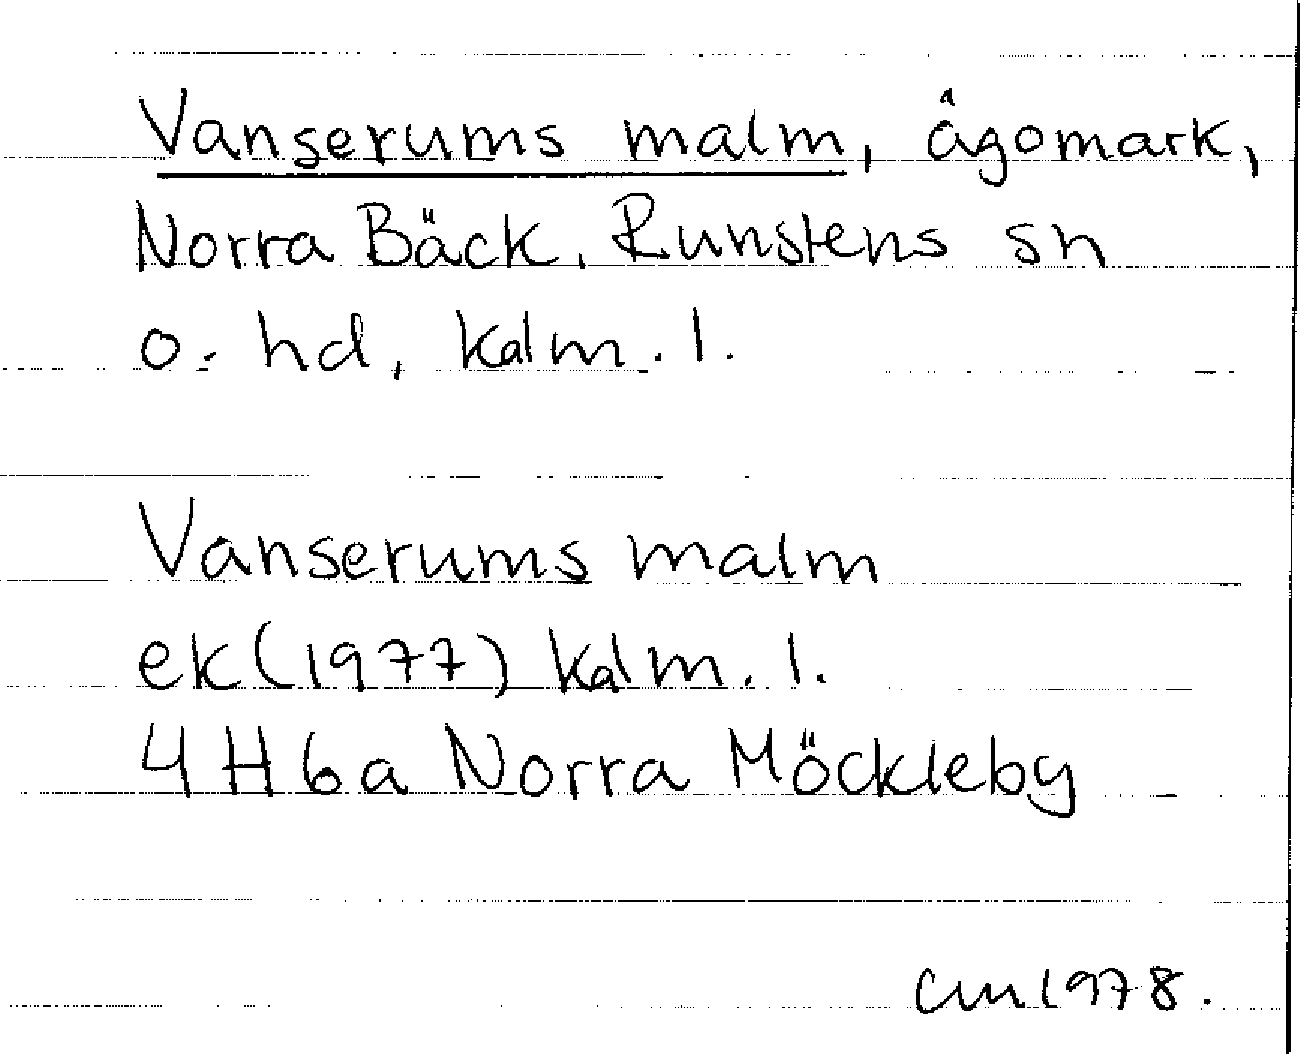 Vanserums malm, ägomark,
Norra Bäck, Runstens sn
o. hd, Kalm. l.
Vanserums malm
ek (1977) Kalm. l.
4 H 6a Norra Möckleby
CM 1978.